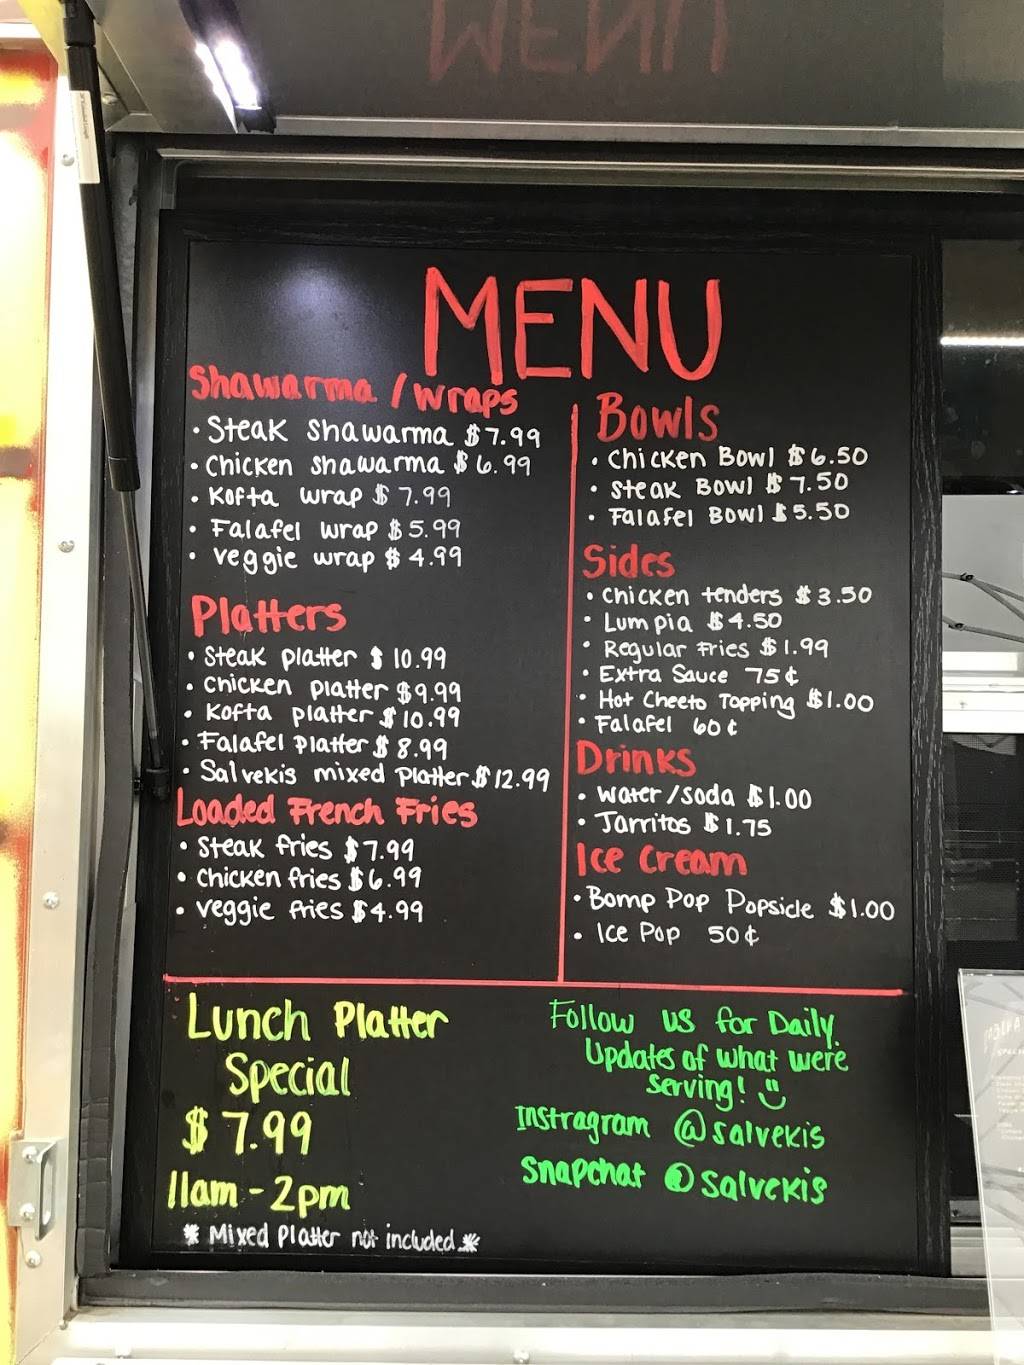 MENU
Shawarma / Wraps
• Steak Shawarma $7.99
• Chicken Shawarma $6.99
• Kofta wrap $7.99
• Falafel wrap $5.99
• Veggie wrap $4.99
Platters
• Steak platter $10.99
• Chicken platter $9.99
• Kofta platter $10.99
• Falafel platter $8.99
• Salvekis mixed platter $12.99
Loaded French Fries
• Steak fries $7.99
• Chicken fries $6.99
• Veggie fries $4.99
Bowls
• Chicken Bowl $6.50
• Steak Bowl $7.50
• Falafel Bowl $5.50
Sides
• Chicken tenders $3.50
• Lumpia $4.50
• Regular Fries $1.99
• Extra Sauce 75¢
• Hot Cheeto Topping $1.00
• Falafel 60¢
Drinks
• Water/soda $1.00
• Jarritos $1.75
Ice Cream
• Bomp Pop Popsicle $1.00
• Ice Pop 50¢
Lunch Platter
Special
$7.99
11am - 2pm
* Mixed Platter not included *
Follow us for Daily
Updates of what were
serving!
Instragram @salvekis
Snapchat @salvekis